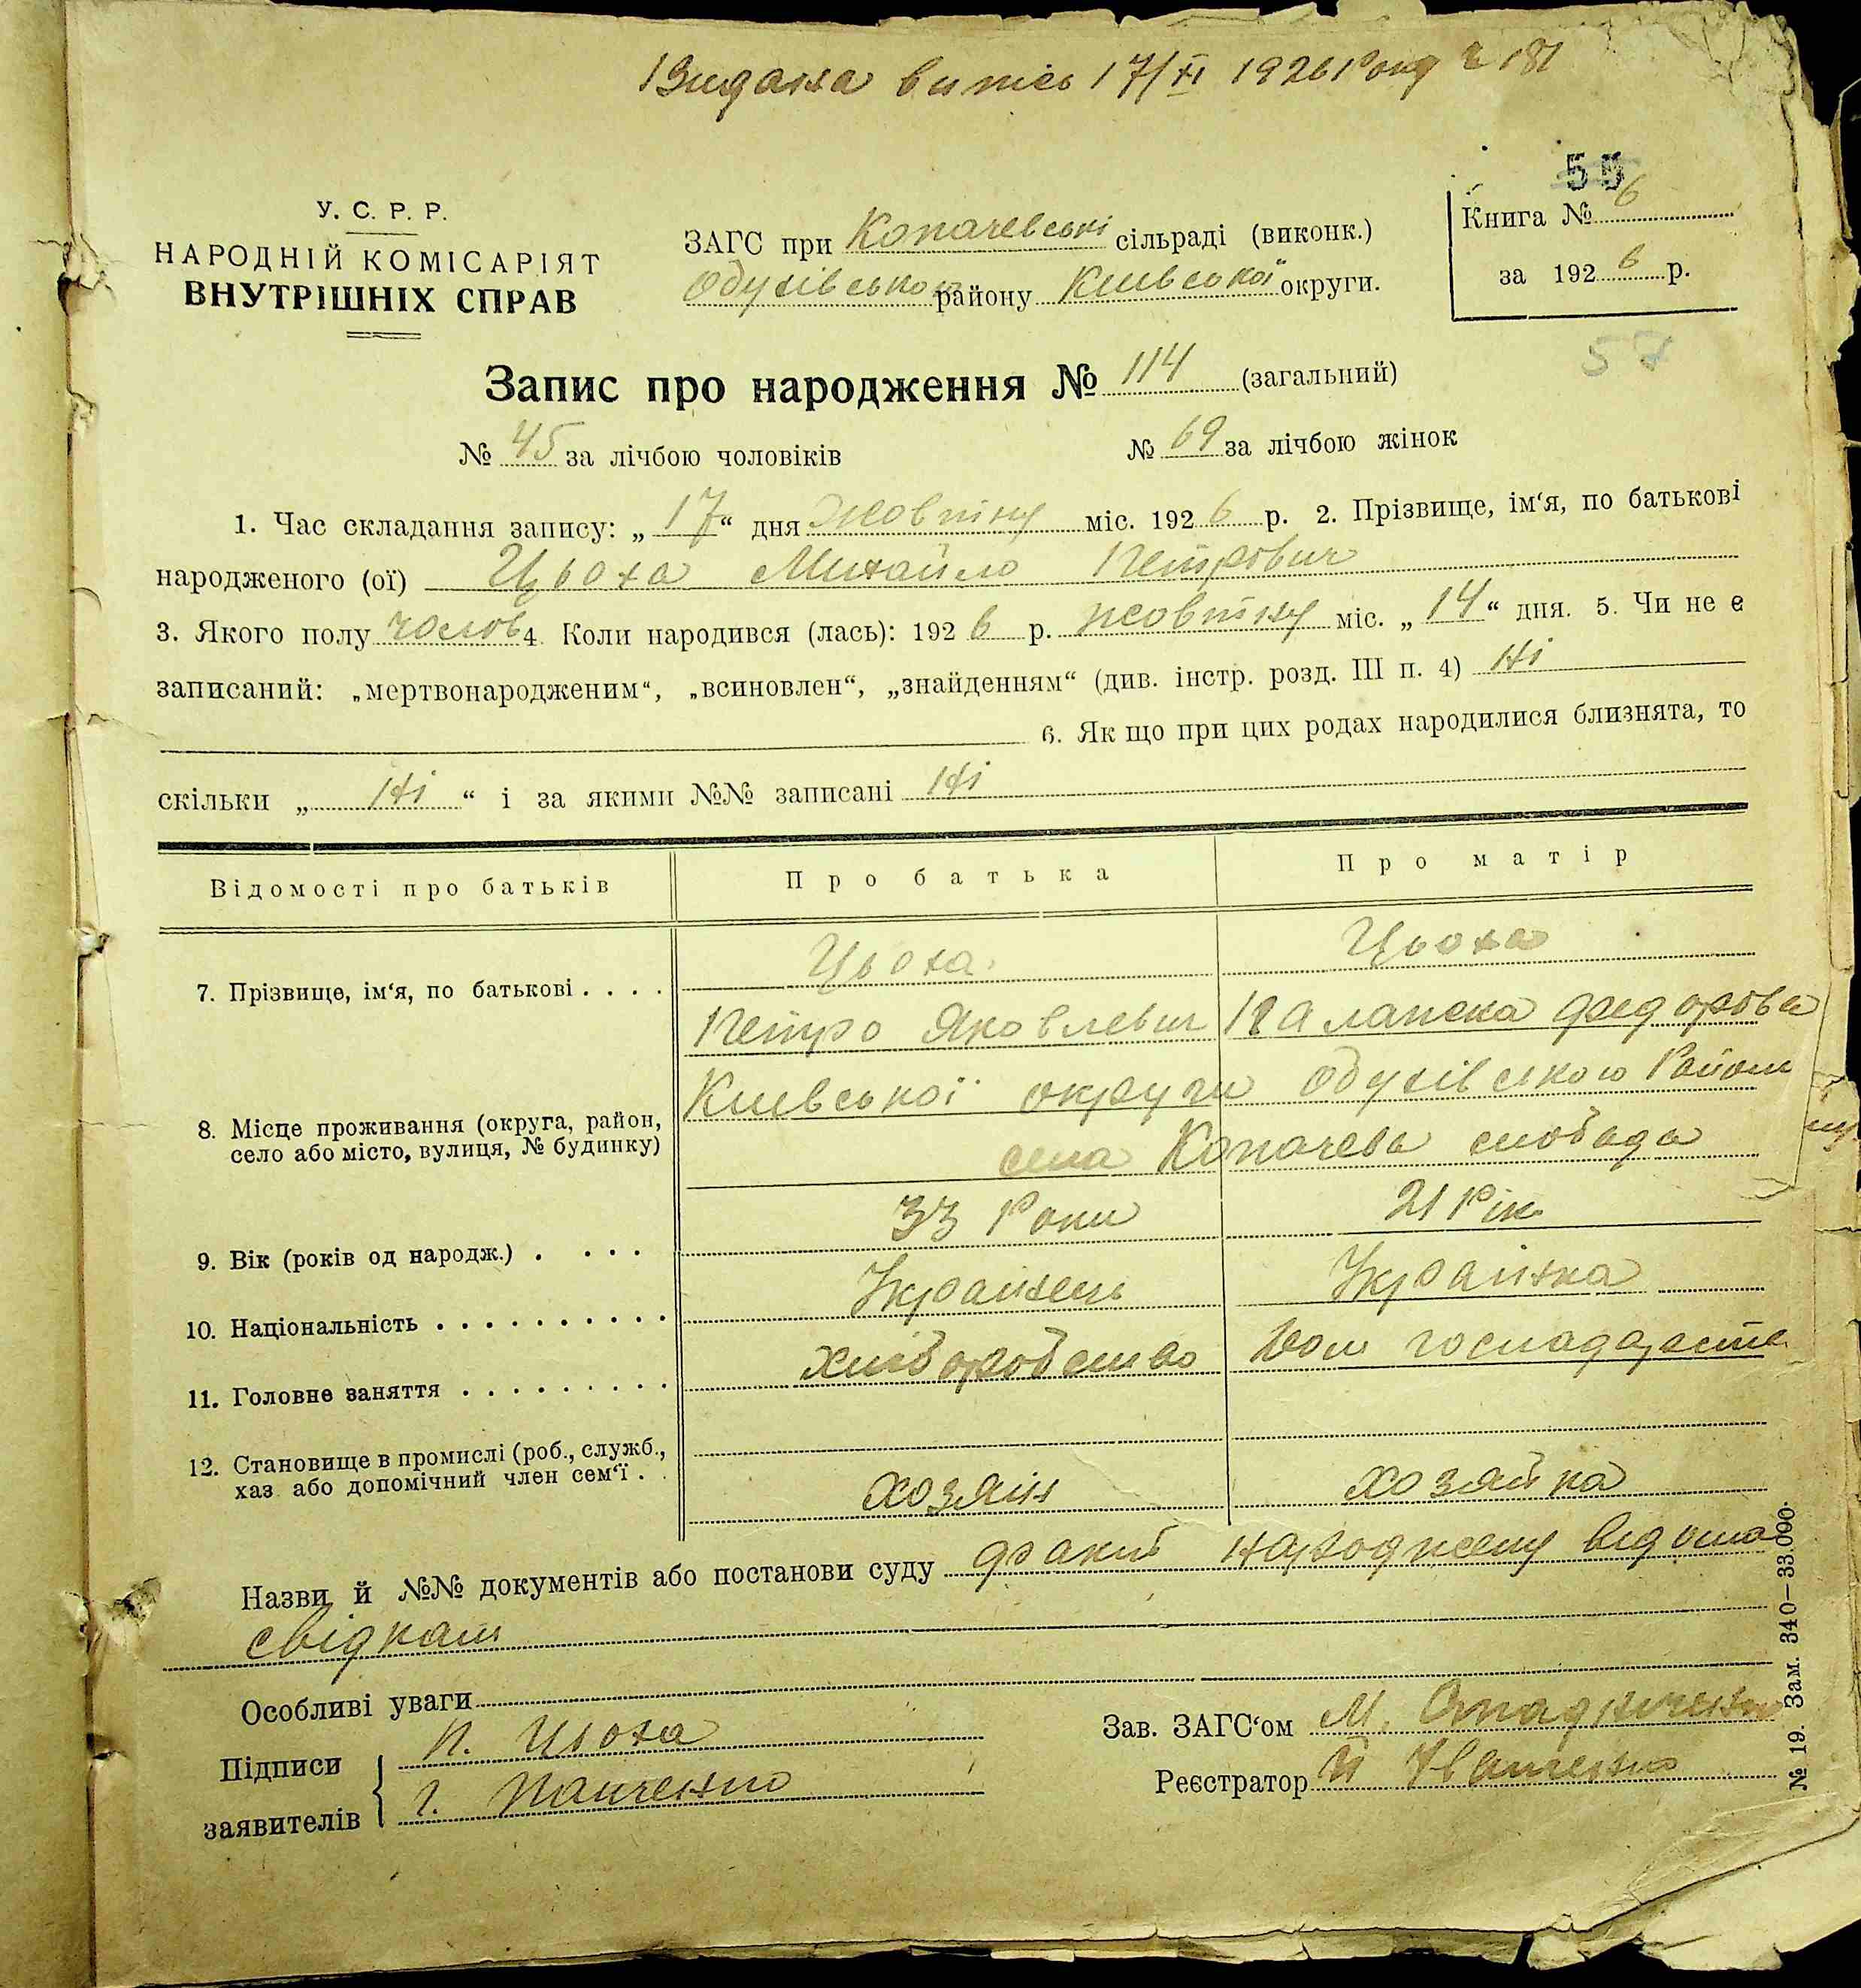 Видана випісь 17/XI 1926 року № 181
55
У. С. Р. Р.
НАРОДНІЙ КОМІСАРІЯТ
ВНУТРІШНІХ СПРАВ
ЗАГС при Копачевські сільраді (виконк.)
Обухівського району Київської округи.
Книга № 6
за 1926 р.
57
Запис про народження № 114 (загальний)
№ 45 за лічбою чоловіків № 69 за лічбою жінок
1. Час складання запису: „17“ дня жовтня міс. 1926 р. 2. Прізвище, ім‘я, по батькові
народженого (ої) Цьоха Михайло Петрович
3. Якого полу чолов 4. Коли народився (лась): 1926 р. жовтня міс. „14“ дня. 5. Чи не є
записаний: „мертвонародженим“, „всиновлен“, „знайденням“ (див. інстр. розд. III п. 4) Ні
6. Як що при цих родах народилися близнята, то
скільки „Ні“ і за якими №№ записані Ні
Відомості про батьків Про батька Про матір
Цьоха Цьоха
7. Прізвище, ім‘я, по батькові . . . .
Петро Яковлевич Палажка Федорова
Київської округи Обухівського Району
8. Місце проживання (округа, район,
село або місто, вулиця, № будинку)
села Копачева слобада
9. Вік (років од народж.) . . . . 33 Роки 21 Рік
10. Національність . . . . . . . . . . Українець Українка
11. Головне заняття . . . . . . . . . хліборобство Дом господарств
12. Становище в промислі (роб., служб.,
хаз або допомічний член сем‘ї . . хозяін хозяйка
Назви й №№ документів або постанови суду факт народженя відомо
свідкам
Особливі уваги
Підписи
заявителів
П. Цьоха
Г. Панченко
Зав. ЗАГС‘ом М.
Реєстратор Іванченко
№ 19. Зам. 340—33.000.